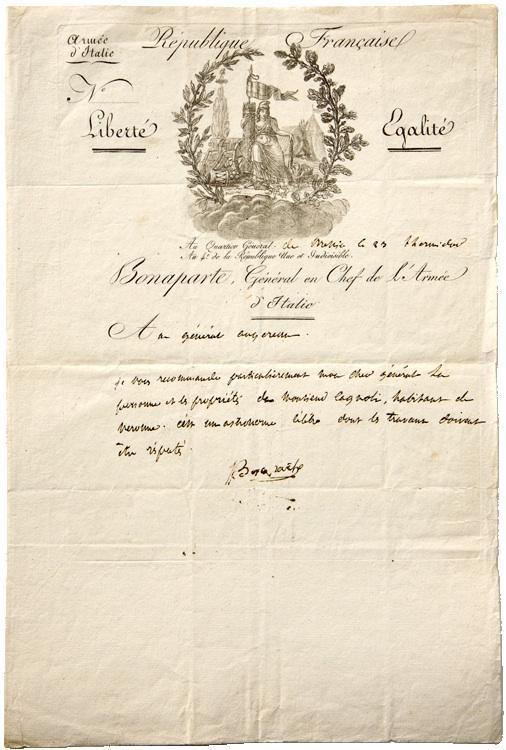 Armée d'Italie
République Française
N
Liberté
Egalité
Au Quartier Général de Bressia le 23 thermidor
An 4.e de la République Une et Indivisible.
Bonaparte, Général en Chef de l'Armée
d'Italie
A au général augereau.
je vous recommande particulièrement mon cher général la
personne et les propriétés de Monsieur Cagnoli, habitant de
veronne. c'est un astronome celèbre dont les travaux doivent
être respectés
Bonaparte